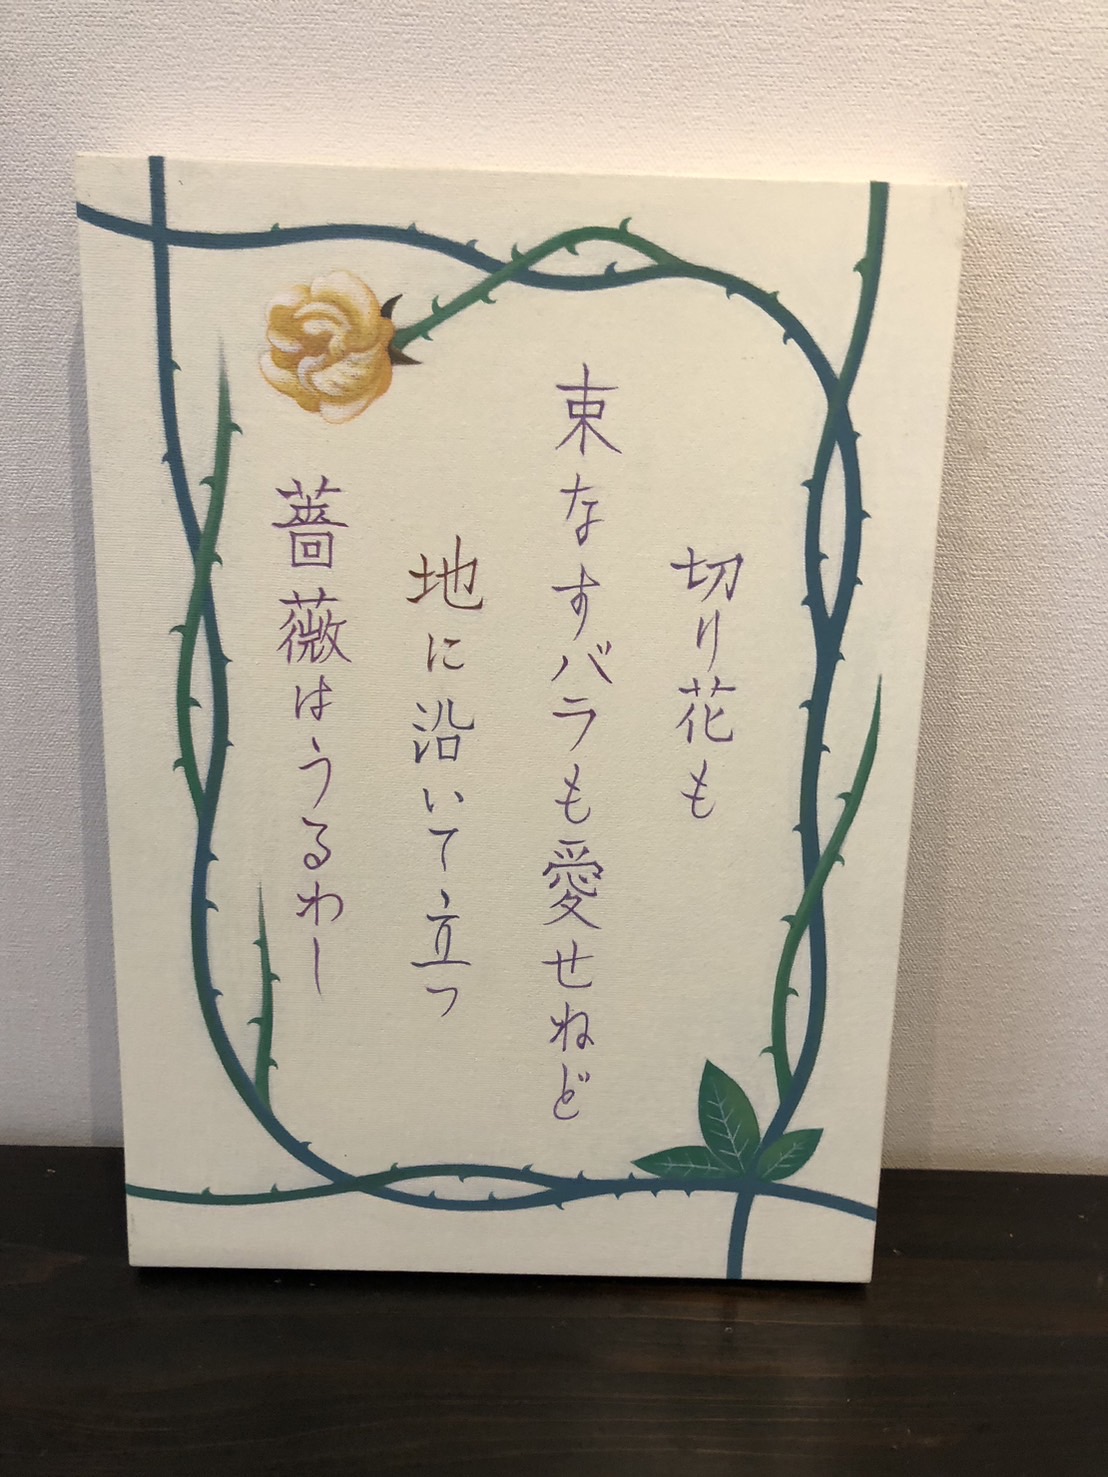 切り花も
束なすバラも愛せねど
地に沿いて立つ
薔薇はうるわし